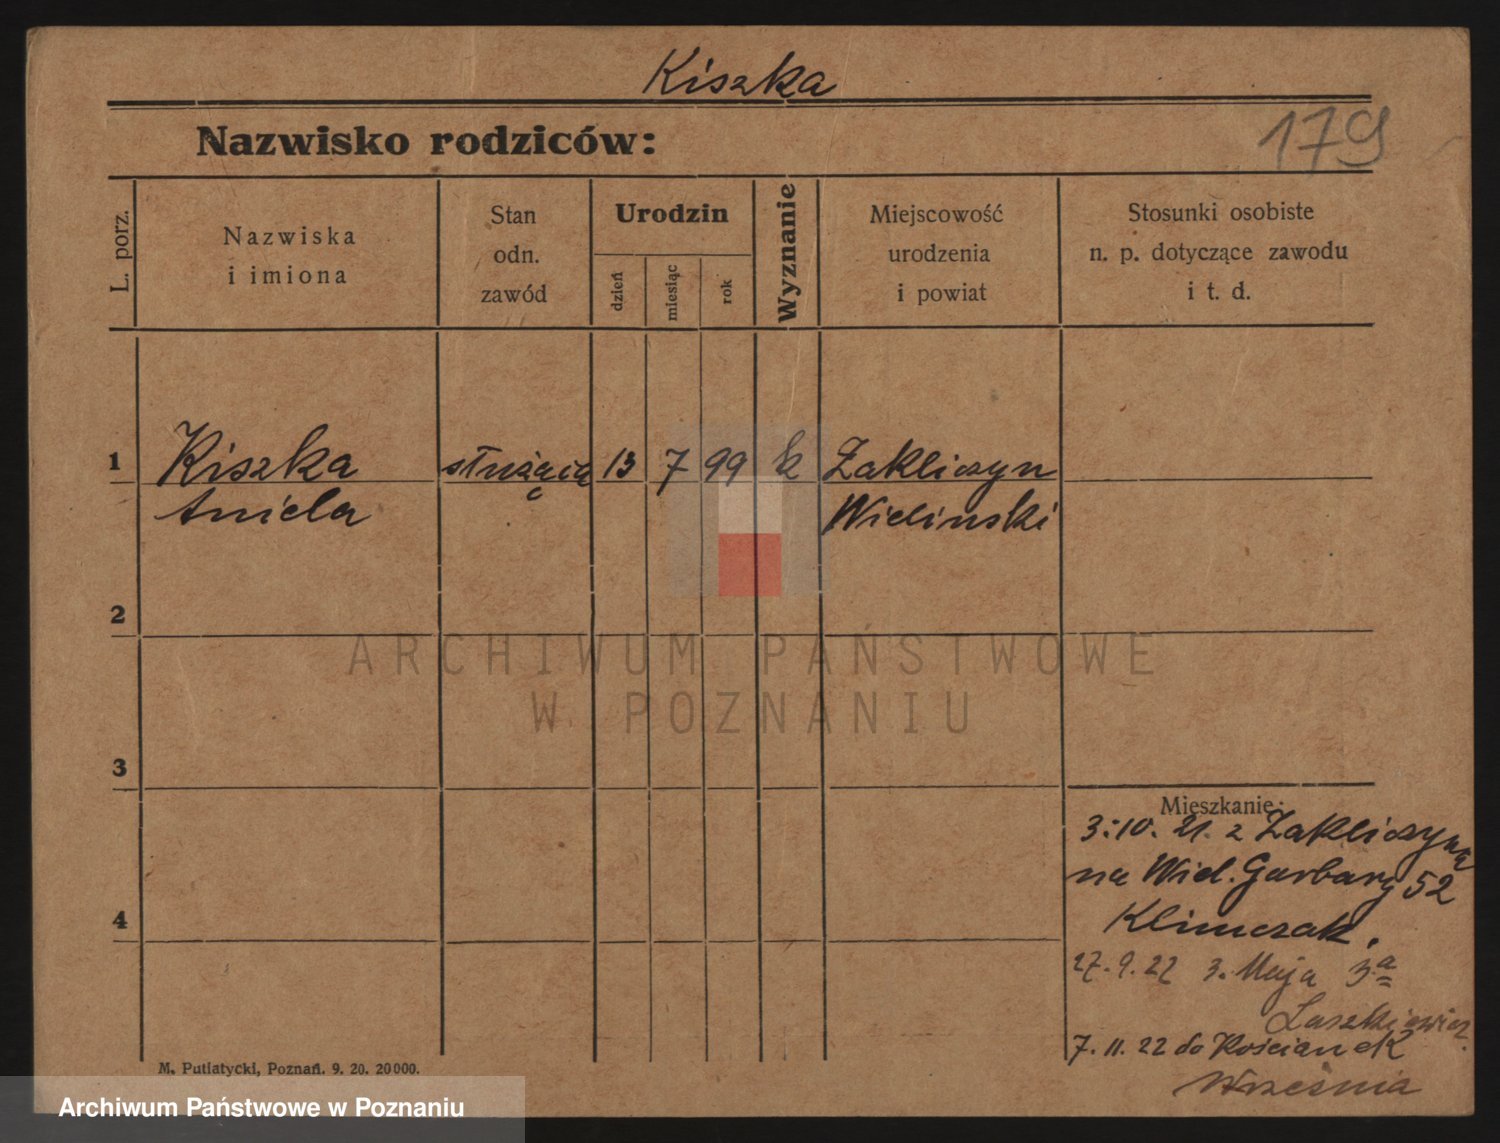 Kiszka
Nazwisko rodziców:
179
L. porz.
Nazwiska
i imiona
Stan
odn.
zawód
Urodzin
dzień
miesiąc
rok
Wyznanie
Miejscowość
urodzenia
i powiat
Stosunki osobiste
n. p. dotyczące zawodu
i t. d.
1
Kiszka służąca 13 7 99 k Zakliczyn
Aniela Wielinski
2
ARCHIWUM PAŃSTWOWE
W POZNANIU
3
Mieszkanie:
3.10.21. z Zakliczyna
na Wiel. Garbary 52
4
Klimczak.
27.9.22 3. Maja 3a
Laszkiewicz.
7.11.22 do Kościanek
Września
M. Putiatycki, Poznań. 9. 20. 20000.
Archiwum Państwowe w Poznaniu